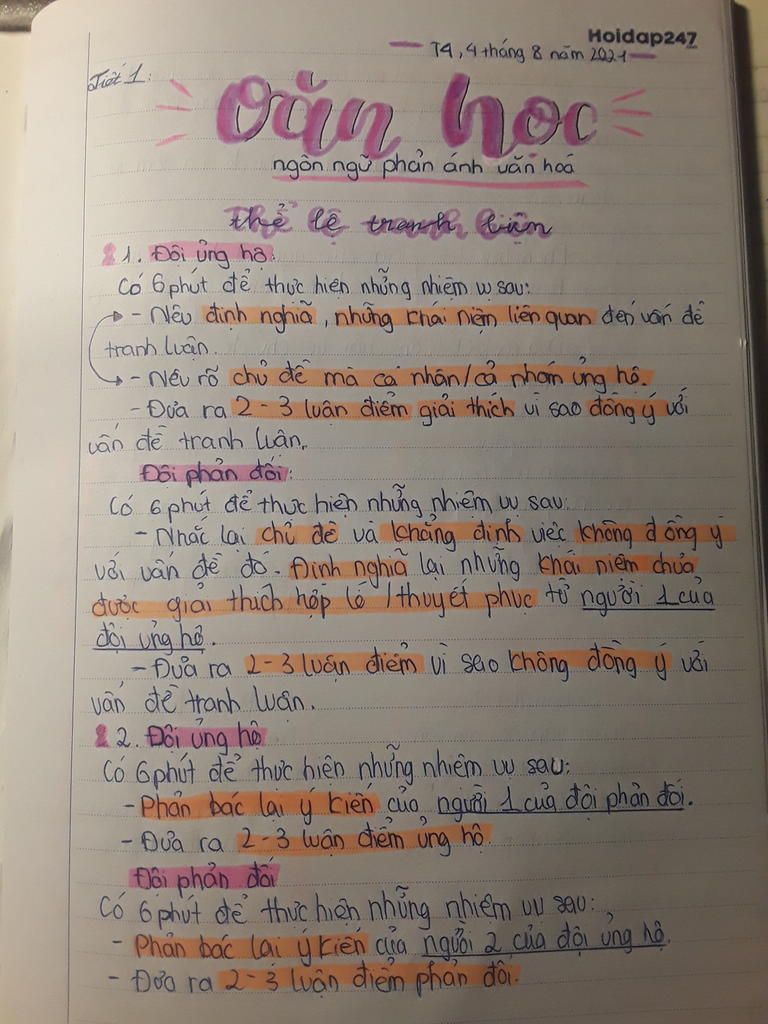 Hoidap247
T4, 4 tháng 8 năm 2021
Tiết 1:
văn học
ngôn ngữ phản ánh văn hoá
thể lệ tranh biện
1. Đội ủng hộ:
Có 6 phút để thực hiện những nhiệm vụ sau:
- Nêu định nghĩa, những khái niệm liên quan đến vấn đề
tranh luận.
- Nêu rõ chủ đề mà cá nhân/cả nhóm ủng hộ.
- Đưa ra 2-3 luận điểm giải thích vì sao đồng ý với
vấn đề tranh luận.
Đội phản đối:
Có 6 phút để thực hiện những nhiệm vụ sau:
- Nhắc lại chủ đề và khẳng định việc không đồng ý
với vấn đề đó. Định nghĩa lại những khái niệm chưa
được giải thích hợp lé /thuyết phục từ người 1 của
đội ủng hộ.
- Đưa ra 2-3 luận điểm vì sao không đồng ý với
vấn đề tranh luận.
2. Đội ủng hộ
Có 6 phút để thực hiện những nhiệm vụ sau:
- Phản bác lại ý kiến của người 1 của đội phản đối.
- Đưa ra 2-3 luận điểm ủng hộ.
Đội phản đối
Có 6 phút để thực hiện những nhiệm vụ sau:
- Phản bác lại ý kiến của người 2 của đội ủng hộ.
- Đưa ra 2-3 luận điểm phản đối.